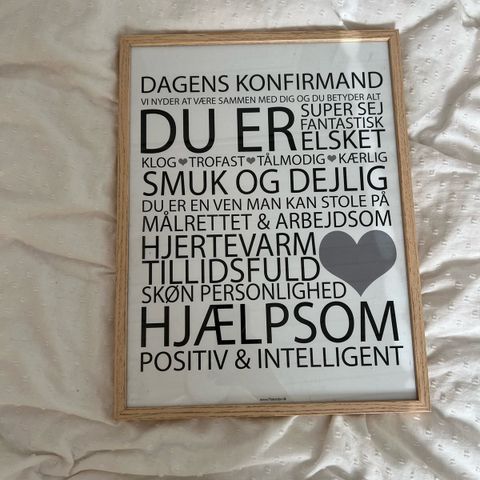 DAGENS KONFIRMAND
VI NYDER AT VÆRE SAMMEN MED DIG OG DU BETYDER ALT
DU ER
SUPER SEJ
FANTASTISK
ELSKET
KLOG♥TROFAST♥TÅLMODIG♥KÆRLIG
SMUK OG DEJLIG
DU ER EN VEN MAN KAN STOLE PÅ
MÅLRETTET & ARBEJDSOM
HJERTEVARM
TILLIDSFULD
SKØN PERSONLIGHED
HJÆLPSOM
POSITIV & INTELLIGENT